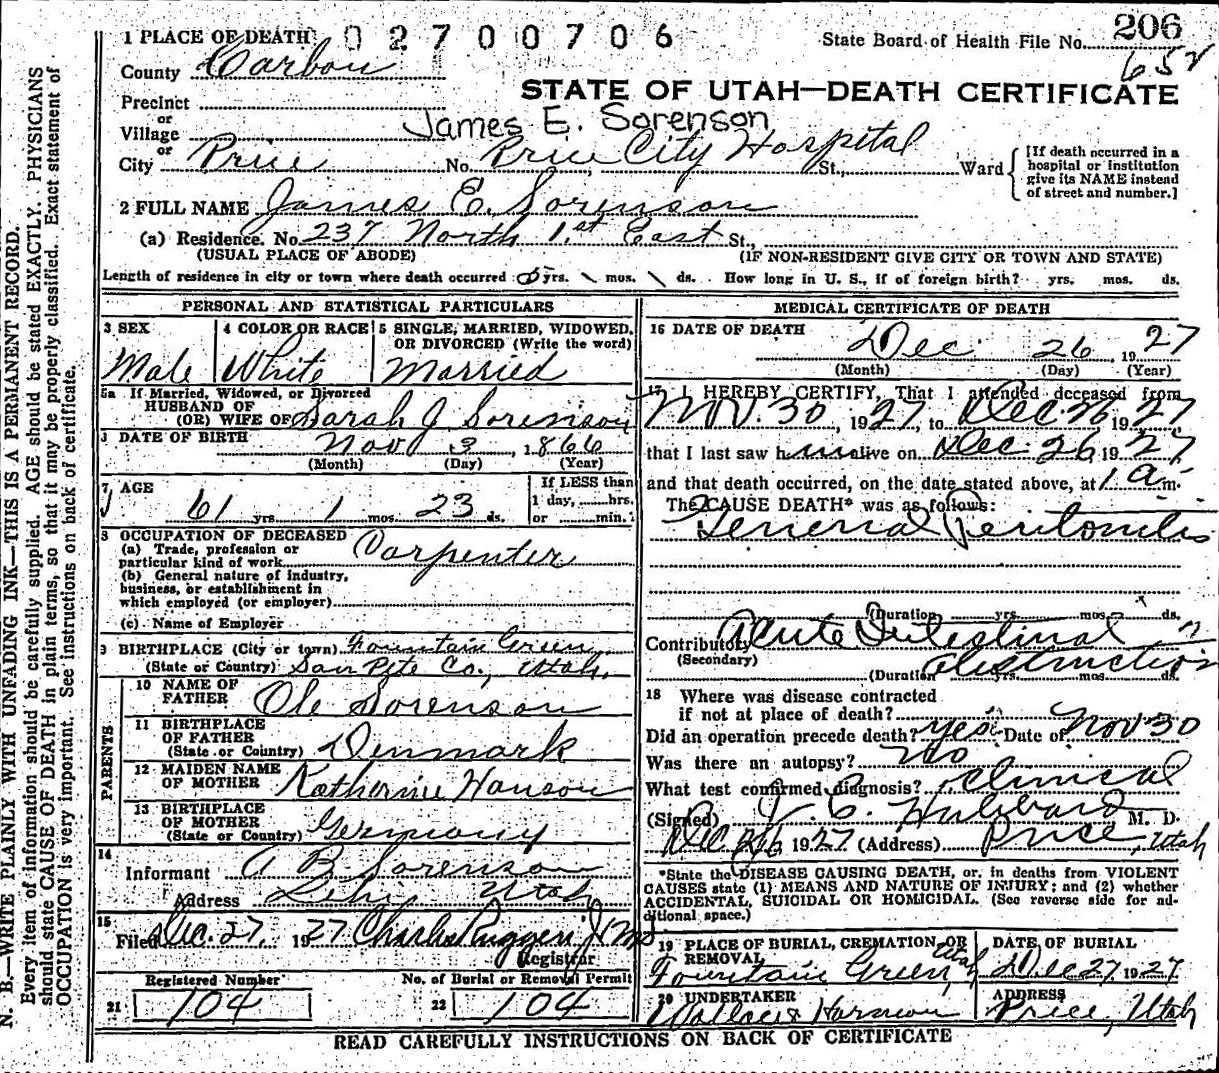 1 PLACE OF DEATH 02700706
State Board of Health File No. 206
652
County Carbon
STATE OF UTAH—DEATH CERTIFICATE
Precinct
or
Village
James E. Sorenson
or
City Price No. Price City Hospital St., Ward
[If death occurred in a hospital or institution give its NAME instead of street and number.]
2 FULL NAME James E. Sorenson
(a) Residence. No. 237 North 1st East St.,
(USUAL PLACE OF ABODE) (IF NON-RESIDENT GIVE CITY OR TOWN AND STATE)
Length of residence in city or town where death occurred yrs. mos. ds. How long in U. S., if of foreign birth? yrs. mos. ds.
PERSONAL AND STATISTICAL PARTICULARS
3 SEX 4 COLOR OR RACE 5 SINGLE, MARRIED, WIDOWED, OR DIVORCED (Write the word)
Male White Married
5a If Married, Widowed, or Divorced
HUSBAND OF
(OR) WIFE OF Sarah J Sorenson
DATE OF BIRTH Nov 3, 1866
(Month) (Day) (Year)
7 AGE If LESS than
1 day, hrs.
61 yrs. 1 mos. 23 ds. or min.
8 OCCUPATION OF DECEASED
(a) Trade, profession or
particular kind of work Carpenter
(b) General nature of industry,
business, or establishment in
which employed (or employer)
(c) Name of Employer
9 BIRTHPLACE (City or town) Fountain Green
(State or Country) San Pete Co., Utah.
PARENTS
10 NAME OF FATHER Ole Sorenson
11 BIRTHPLACE OF FATHER
(State or Country) Denmark
12 MAIDEN NAME OF MOTHER Katherine Hanson
13 BIRTHPLACE OF MOTHER
(State or Country) Germany
14
Informant A B Sorenson
Address Lehi, Utah
15
Filed Dec. 27, 1927 Charles Ruggeri Jr MD
Registrar
Registered Number No. of Burial or Removal Permit
21 104 22 104
MEDICAL CERTIFICATE OF DEATH
16 DATE OF DEATH
Dec 26, 1927
(Month) (Day) (Year)
17 I HEREBY CERTIFY, That I attended deceased from
Nov. 30, 1927, to Dec 26 1927
that I last saw him alive on Dec. 26 1927
and that death occurred, on the date stated above, at 1 a m.
The CAUSE DEATH* was as follows:
General Peritonitis
(Duration yrs. mos. ds.
Contributory Acute Intestinal
(Secondary) Obstruction
(Duration yrs. mos. ds.
18 Where was disease contracted
if not at place of death?
Did an operation precede death? yes Date of Nov 30
Was there an autopsy? No
What test confirmed diagnosis? Clinical
(Signed) J. C. Hubbard M. D.
Dec 26 1927 (Address) Price, Utah
*State the DISEASE CAUSING DEATH, or, in deaths from VIOLENT
CAUSES state (1) MEANS AND NATURE OF INJURY; and (2) whether
ACCIDENTAL, SUICIDAL OR HOMICIDAL. (See reverse side for ad-
ditional space.)
19 PLACE OF BURIAL, CREMATION, OR REMOVAL DATE OF BURIAL
Fountain Green, Utah Dec 27, 1927
20 UNDERTAKER ADDRESS
Wallace Harmon Price, Utah
READ CAREFULLY INSTRUCTIONS ON BACK OF CERTIFICATE
N. B.—WRITE PLAINLY WITH UNFADING INK—THIS IS A PERMANENT RECORD.
Every item of information should be carefully supplied. AGE should be stated EXACTLY. PHYSICIANS
should state CAUSE OF DEATH in plain terms, so that it may be properly classified. Exact statement of
OCCUPATION is very important. See instructions on back of certificate.